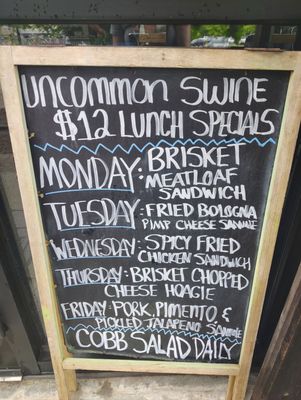 UNCOMMON SWINE
$12 LUNCH SPECIALS
MONDAY: BRISKET
MEATLOAF
SANDWICH
TUESDAY: FRIED BOLOGNA
PIMP CHEESE SAMMIE
WEDNESDAY: SPICY FRIED
CHICKEN SANDWICH
THURSDAY: BRISKET CHOPPED
CHEESE HOAGIE
FRIDAY: PORK, PIMENTO, &
PICKLED JALAPEÑO SAMMIE
COBB SALAD DAILY